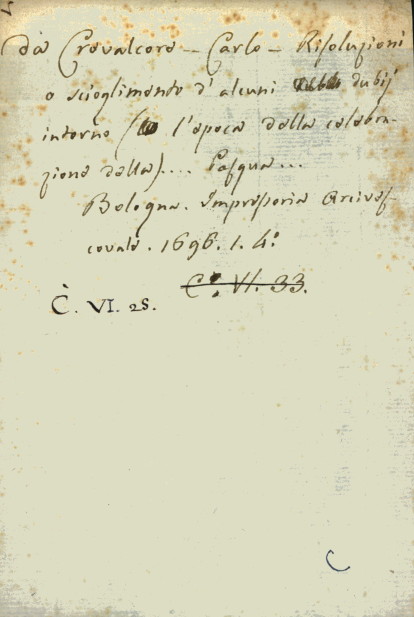 da Crevalcore — Carlo — Risoluzioni
o scioglimento d'alcuni dubij
intorno (l'epoca della celebra-
zione della).... Pasqua...
Bologna. Impressoria Arcives-
covale. 1696. 1. 4.°
C.° VI. 33.
C. VI. 28.
C